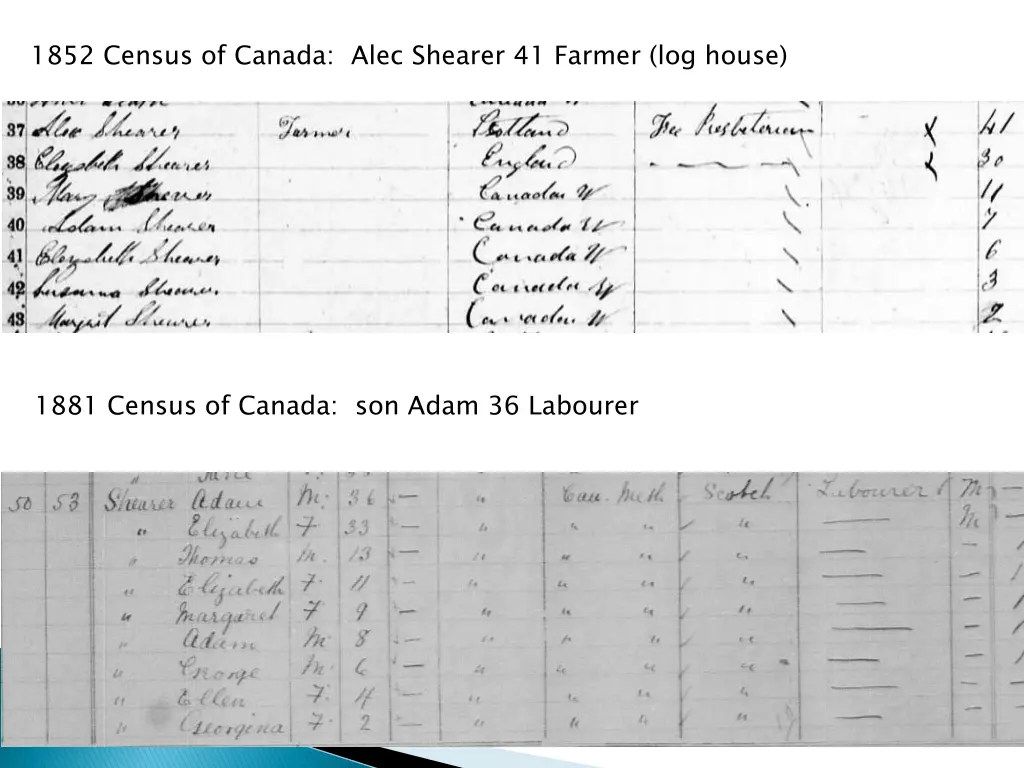 1852 Census of Canada:  Alec Shearer 41 Farmer (log house)
37 Alex Shearer Farmer Scotland Free Presbeterian X 41
38 Elizabeth Shearer England 30
39 Mary Shearer Canada W 11
40 Adam Shearer Canada W 7
41 Elizabeth Shearer Canada W 6
42 Susanna Shearer Canada W 3
43 Margrit Shearer Canada W 2
1881 Census of Canada:  son Adam 36 Labourer
50 53 Shearer Adam M. 36 — " Can. Meth Scotch Labourer M —
" Elizabeth F 33 — " " " " — M —
" Thomas M. 13 — " " " " — —
" Elizabeth F. 11 — " " " " — —
" Margaret F. 9 — " " " " — —
" Adam M. 8 — " " " " — —
" George M. 6 — " " " " — —
" Ellen F. 4 — " " " " — —
" Georgina F. 2 — " " " " — —